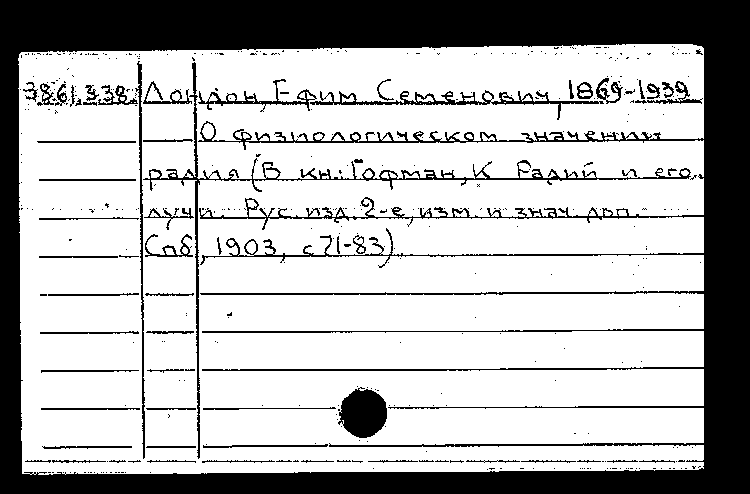 3861.338. Лондон, Ефим Семенович, 1869-1939
О физиологическом значении
радия (В кн.: Гофман, К Радий и его
лучи. Рус. изд. 2-е, изм. и знач. доп.
Спб, 1903, с 71-83).